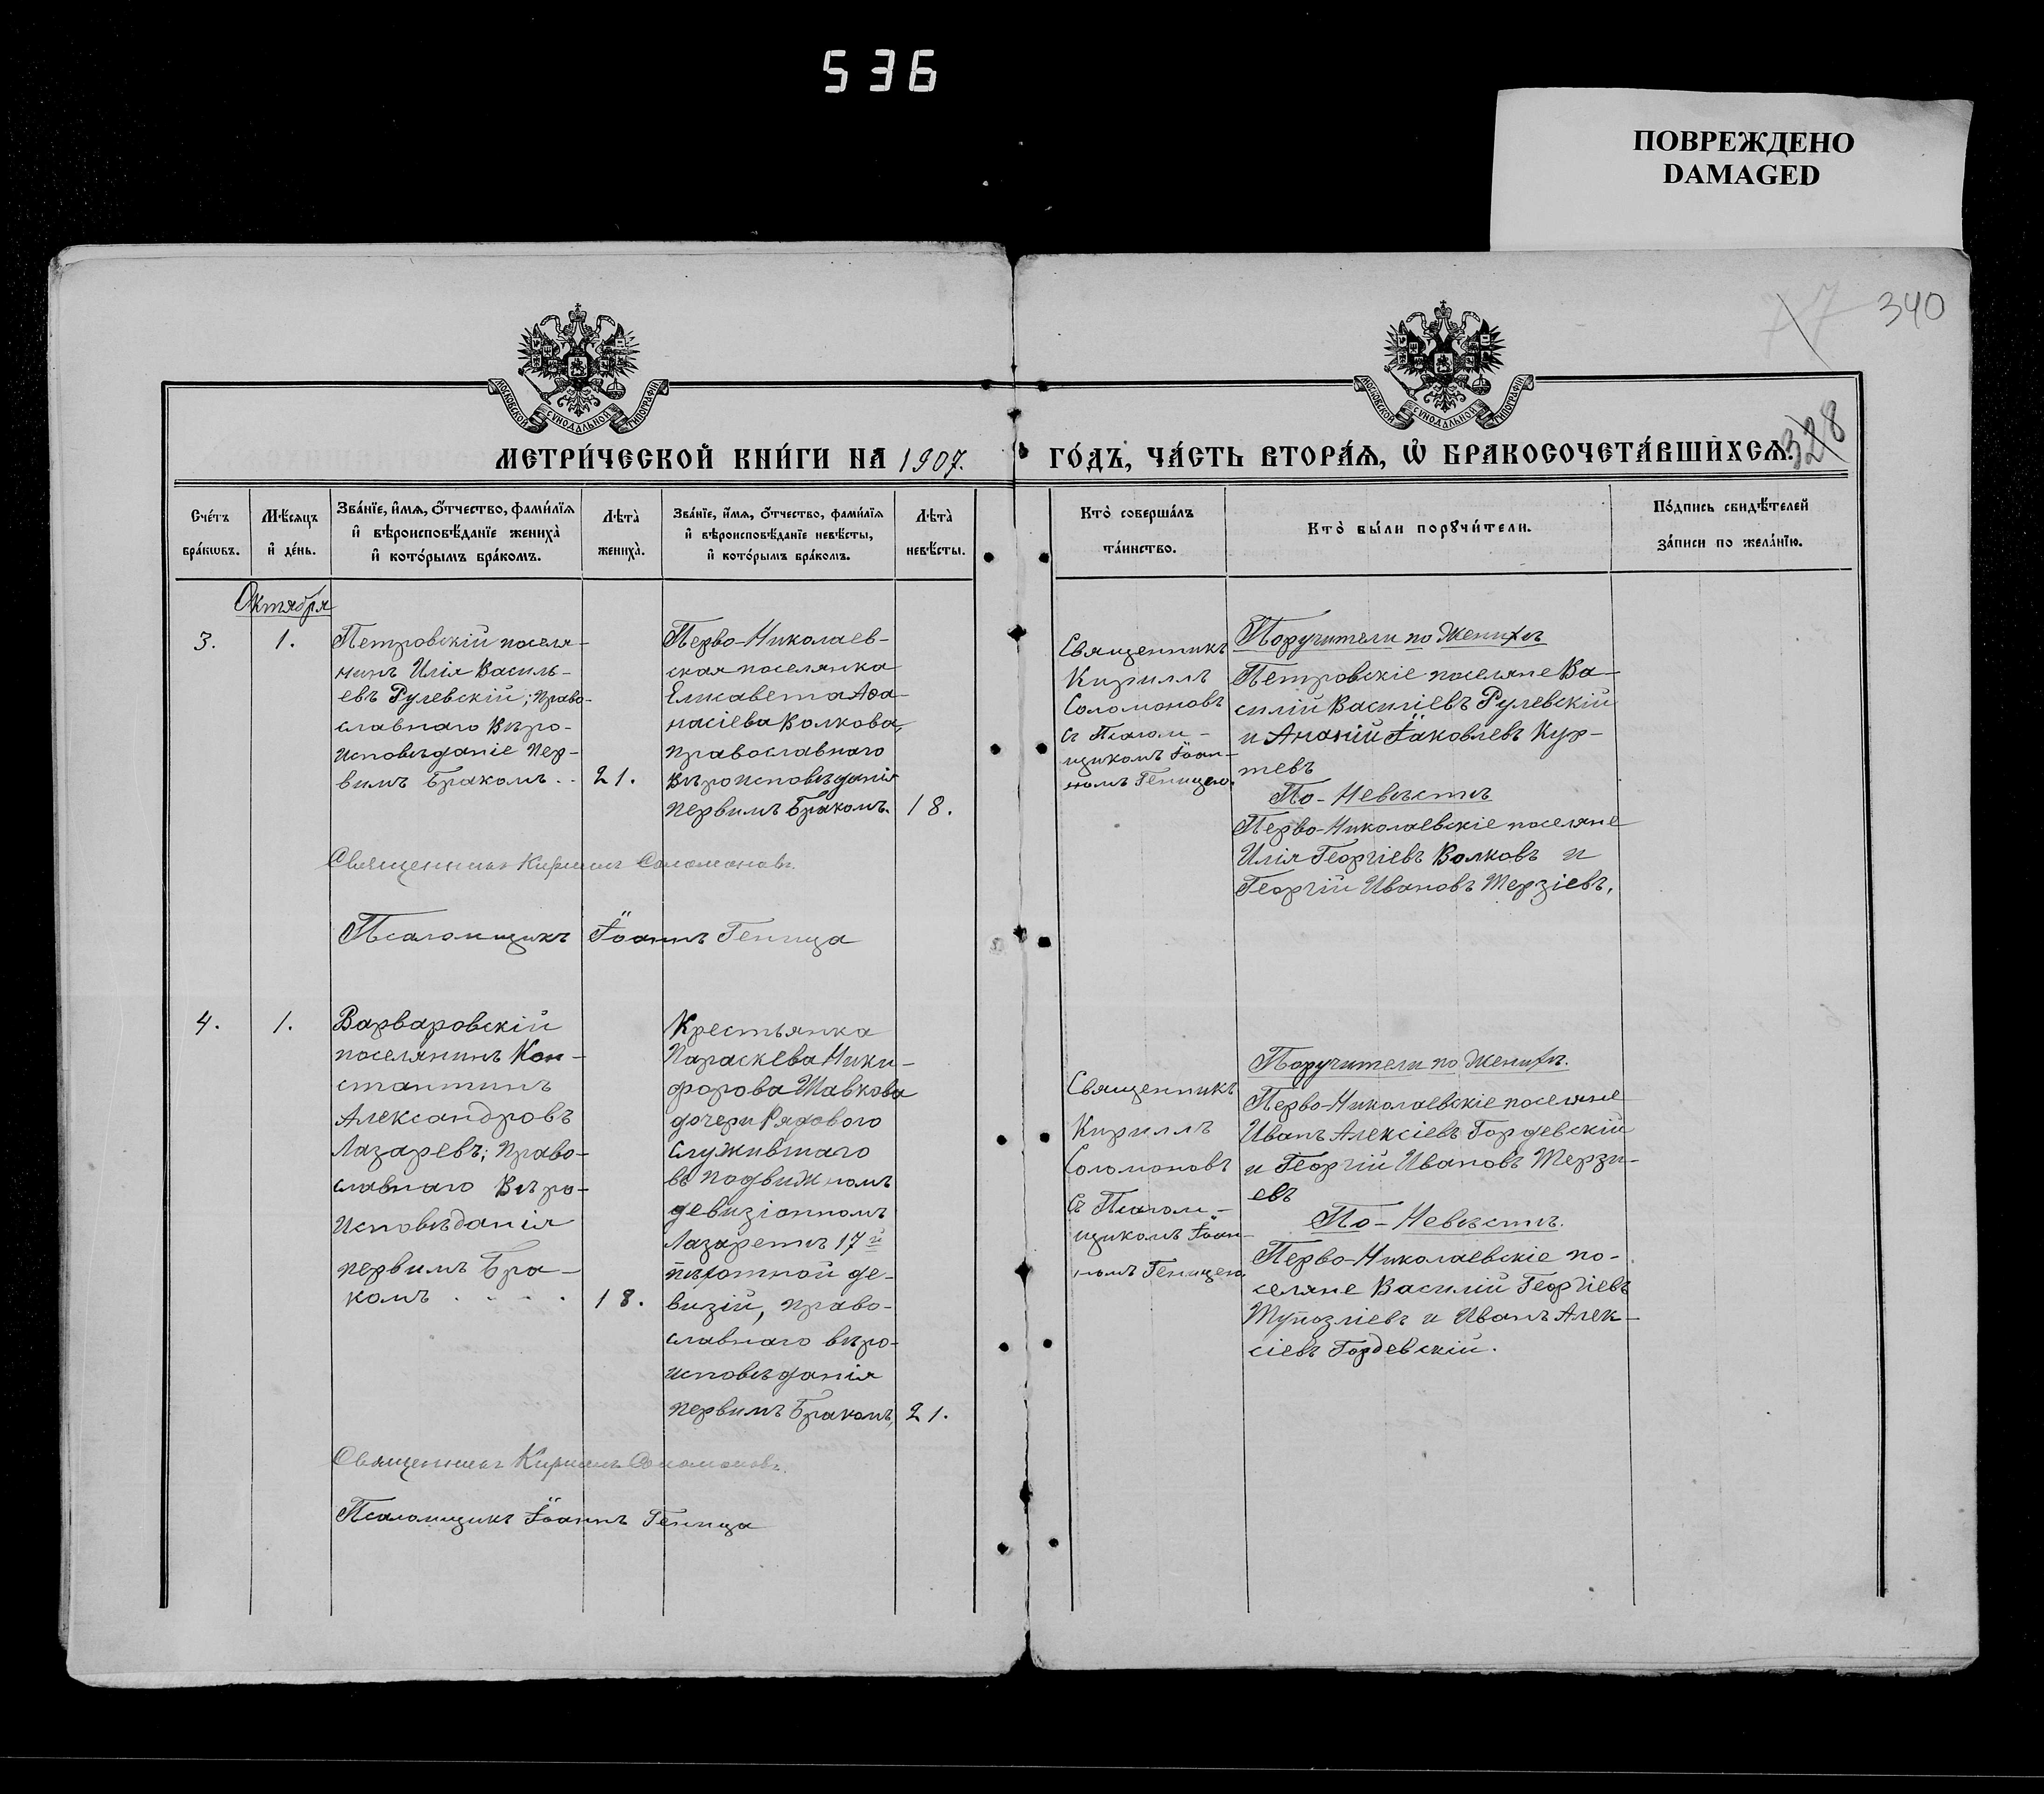 536
ПОВРЕЖДЕНО
DAMAGED
340
328
МОСКОВСКОЙ СѴНОДАЛЬНОЙ ТИПОГРАФІИ
МОСКОВСКОЙ СѴНОДАЛЬНОЙ ТИПОГРАФІИ
МЕТРИ́ЧЕСКОЙ КНИ́ГИ НА 1907.
ГО́ДЪ, ЧА́СТЬ ВТОРА́Ѧ, Ѡ҆ БРАКОСОЧЕТА́ВШИХСѦ.
Сче́тъ бра́кѡвъ.
Мѣ́сяцъ и҆ де́нь.
Зва́нїе, и҆́мя, ѻ҆́тчество, фами́лїя
и҆ вѣроисповѣ́данїе жениха̀
и҆ кото́рымъ бра́комъ.
Лѣта̀ жениха̀.
Зва́нїе, и҆́мя, ѻ҆́тчество, фами́лїя
и҆ вѣроисповѣ́данїе невѣ́сты,
и҆ кото́рымъ бра́комъ.
Лѣта̀ невѣ́сты.
Кто̀ соверша́лъ
та́инство.
Кто̀ бы́ли порꙋчи́тели.
По́дпись свидѣ́телей
за́писи по жела́нїю.
Октября
3.
1.
Петровскій поселя-
нинъ Илія Василь-
евъ Рулевскій; Право-
славнаго Вѣро-
исповѣданіе Пер-
вымъ Бракомъ..
21.
Перво-Николаев-
ская поселянка
Елисавета Аѳа-
насіева Волкова,
Православнаго
Вѣроисповѣданія
Первымъ Бракомъ.
18.
Священникъ
Кириллъ
Соломоновъ
съ Псалом-
щикомъ Іоан-
номъ Геницею.
Поручители по Женихѣ
Петровскіе поселяне Ва-
силій Василіевъ Рулевскій
и Ананій Іаковлевъ Кур-
тевъ
По-Невѣстѣ
Перво-Николаевскіе поселяне
Илія Георгіевъ Волковъ и
Георгій Ивановъ Терзіевъ.
Священникъ Кириллъ Соломоновъ.
Псаломщикъ Іоаннъ Геница
4.
1.
Варваровскій
поселянинъ Кон-
стантинъ
Александровъ
Лазаревъ; Право-
славнаго Вѣро-
Исповѣданія
первымъ Бра-
комъ . . . .
18.
Крестьянка
Параскева Ники-
форова Шавкова
дочери Рядового
Служившаго
въ Подвижномъ
девизіонномъ
Лазаретѣ 17й
пѣхотной де-
визій, право-
славнаго вѣро-
исповѣданія
первымъ Бракомъ,
21.
Священникъ
Кириллъ
Соломоновъ
съ Псалом-
щикомъ Іоан-
номъ Геницею.
Поручители по Женихѣ.
Перво-Николаевскіе поселяне
Иванъ Алексіевъ Гордевскій
и Георгій Ивановъ Терзи-
евъ
По-Невѣстѣ.
Перво-Николаевскіе по-
селяне Василій Георгіевъ
Тупозліевъ и Иванъ Алек-
сіевъ Гордевскій.
Священникъ Кириллъ Соломоновъ.
Псаломщикъ Іоаннъ Геница